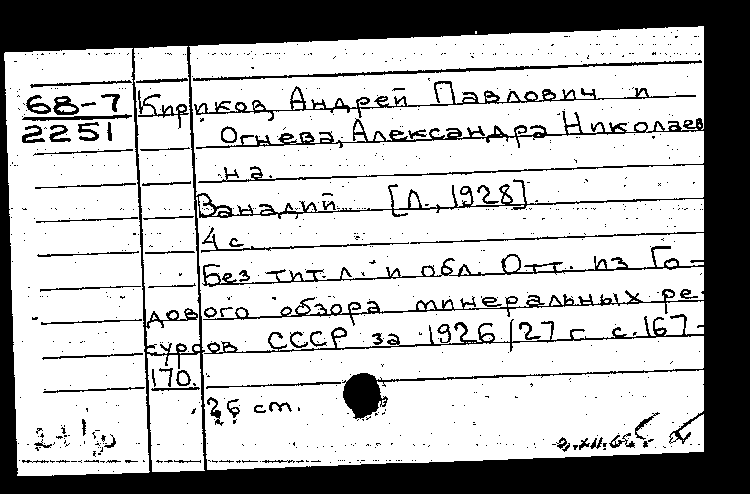 68-7 Кириков, Андрей Павлович и
2251 Огнева, Александра Николаев
на.
Ванадий [Л., 1928].
4 с.
Без тит. л. и обл. Отт. из Го-
дового обзора минеральных ре-
сурсов СССР за 1926/27 г. с. 167-
170.
26 cm.